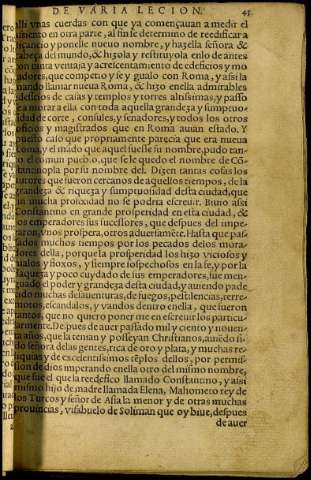 DE VARIA LECION. 43
alli vnas cuerdas con que ya començauan a medir el
en otra parte, al fin se determino de reedificar a
y ponelle nueuo nombre, y hazella señora &
cabeça del mundo, & hizola y restituyola enlo de antes
con tanta ventaja y acrescentamiento de edeficios y mo
radores, que competio y se ygualo con Roma, y assi la
mando llamar nueua Roma, & hizo enella admirables
edeficios de casas y templos y torres altissimas, y passo
se a morar a ella con toda aquella grandeza y sumptuo
sidad de corte, consules, y senadores, y todos los otros
officios y magistrados que en Roma auian estado. Y
puesto caso que propriamente parecia que era nueua
Roma, y el mādo que aquel fuesse su nombre, pudo tan
to el comun pueblo, que se le quedo el nombre de Cō
stantinopla por su nombre del. Dizen tantas cosas los
autores que fueron cercanos de aquellos tiempos, de la
grandeza & riqueza y sumptuosidad desta ciudad, que
sin mucha prolixidad no se podria escreuir. Biuio assi
Constantino en grande prosperidad en esta ciudad, &
los emperadores sus succssores, que despues del impe
raron, vnos prospera, otros aduersamēte. Hasta que pas
sados muchos tiempos por los pecados delos mora-
dores della, porque la prosperidad los hizo viciosos y
malos y floxos, y siempre sospechosos en la fe, y por la
flaqueza y poco cuydado de sus emperadores, fue men-
guado el poder y grandeza desta ciudad, y auiendo pade
cido muchas desauenturas, de fuegos, pestilencias, terre-
motos, escandalos, y vandos dentro enella, que fueron
tantos, que no quero poner me en escreuir los particu-
larmente. Despues de auer passado mil y ciento y nouen-
ta años, que la tenian y posseyan Christianos, auiēdo si-
do señora delas gentes, rica de oro y plata, y muchas re-
liquias y de excelentissimos tēplos dellos, por permis-
sion de dios imperando enella otro del mismo nombre,
que fue el que la reedefico llamado Constantino, y assi
mismo hijo de madre llamada Elena, Mahometo rey de
los Turcos y señor de Asia la menor y de otras muchas
prouincias, visabuelo de Soliman que oy biue, despues
de auer